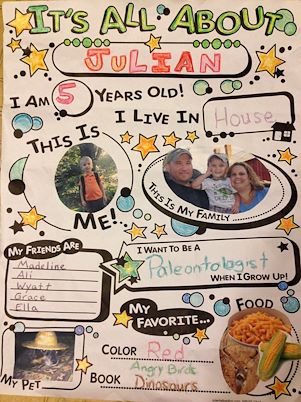 IT'S ALL ABOUT
JULIAN
I AM 5 YEARS OLD!
I LIVE IN House
THIS IS
ME!
THIS IS MY FAMILY
MY FRIENDS ARE
Madeline
Ali
Wyatt
Grace
Ella
I WANT TO BE A
Paleontologist
WHEN I GROW UP!
MY FAVORITE...
FOOD
COLOR Red
Angry Birds
BOOK Dinosaurs
MY PET